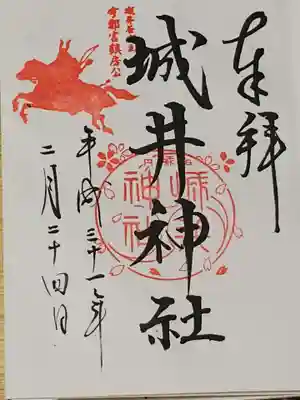 奉拝
城井神社
城井谷城主
宇都宮鎮房公
平成三十一年
二月二十四日
城井神社